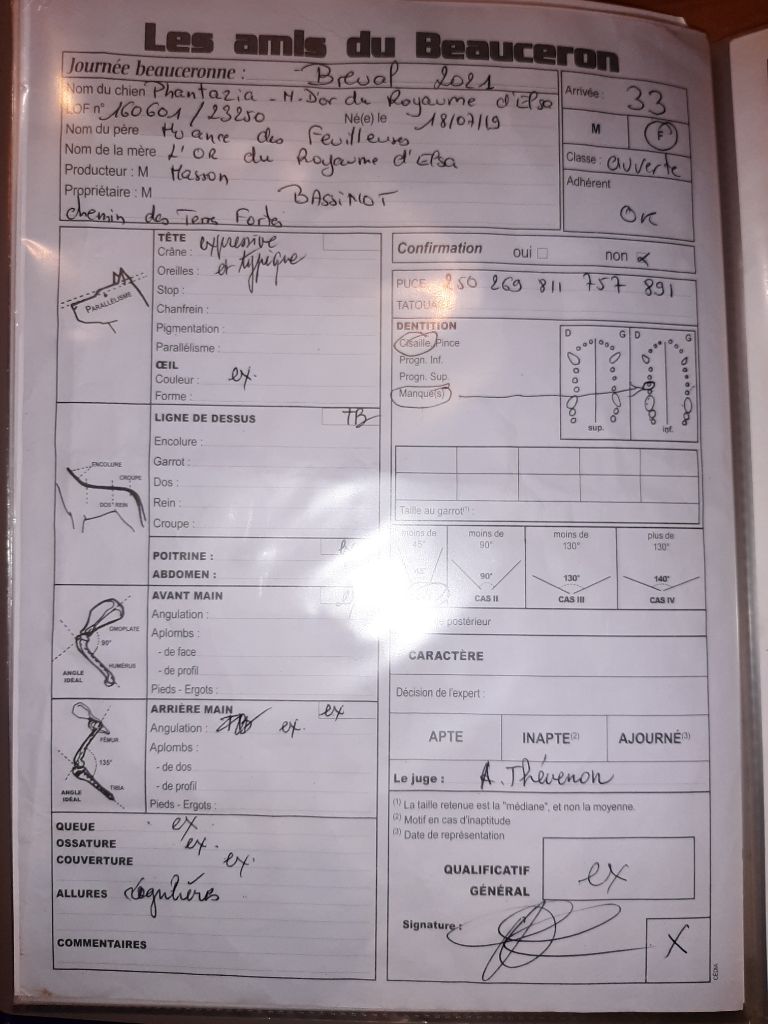 Les amis du Beauceron
Journée beauceronne : Bréval 2021
Nom du chien Phantazia - M. D'or du Royaume d'Elsa
LOF n° 160601 / 23250 Né(e) le 18/07/19
Nom du père des Feuilleuses
Nom de la mère L'OR du Royaume d'Elsa
Producteur : M Masson
Propriétaire : M BASSINOT
chemin des Terres Fortes
Arrivée : 33
M F
Classe : ouverte
Adhérent
OK
PARALLÉLISME
TÊTE expressive
Crâne :
Oreilles : et typique
Stop :
Chanfrein :
Pigmentation :
Parallélisme :
ŒIL
Couleur : ex.
Forme :
ENCOLURE
CROUPE
DOS REIN
LIGNE DE DESSUS TB
Encolure :
Garrot :
Dos :
Rein :
Croupe :
POITRINE :
ABDOMEN :
OMOPLATE
90°
HUMÉRUS
ANGLE
IDÉAL
AVANT MAIN
Angulation :
Aplombs :
- de face
- de profil
Pieds - Ergots :
FÉMUR
135°
TIBIA
ANGLE
IDÉAL
ARRIÈRE MAIN ex
Angulation : ex.
Aplombs :
- de dos
- de profil
Pieds - Ergots :
QUEUE ex
OSSATURE ex.
COUVERTURE ex.
ALLURES régulières
COMMENTAIRES
Confirmation oui non
PUCE 250 269 811 757 891
TATOUA
DENTITION
Cisaille, Pince
Progn. Inf.
Progn. Sup.
Manque(s)
D G D G
sup. inf.
Taille au garrot(1) :
moins de
45°
moins de
90°
moins de
130°
plus de
130°
45° 90° 130° 140°
CAS II CAS III CAS IV
postérieur
CARACTÈRE
Décision de l'expert :
APTE INAPTE(2) AJOURNÉ(3)
Le juge : A. Thévenon
(1) La taille retenue est la "médiane", et non la moyenne.
(2) Motif en cas d'inaptitude
(3) Date de représentation
QUALIFICATIF
GÉNÉRAL
ex
Signature :
X
CÉDIA